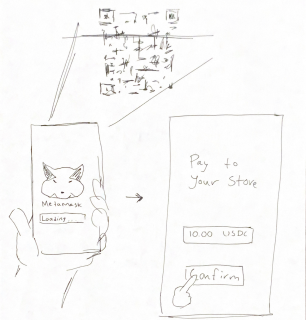 Metamask
Loading
Pay to
Your Store
10.00 USDC
Confirm